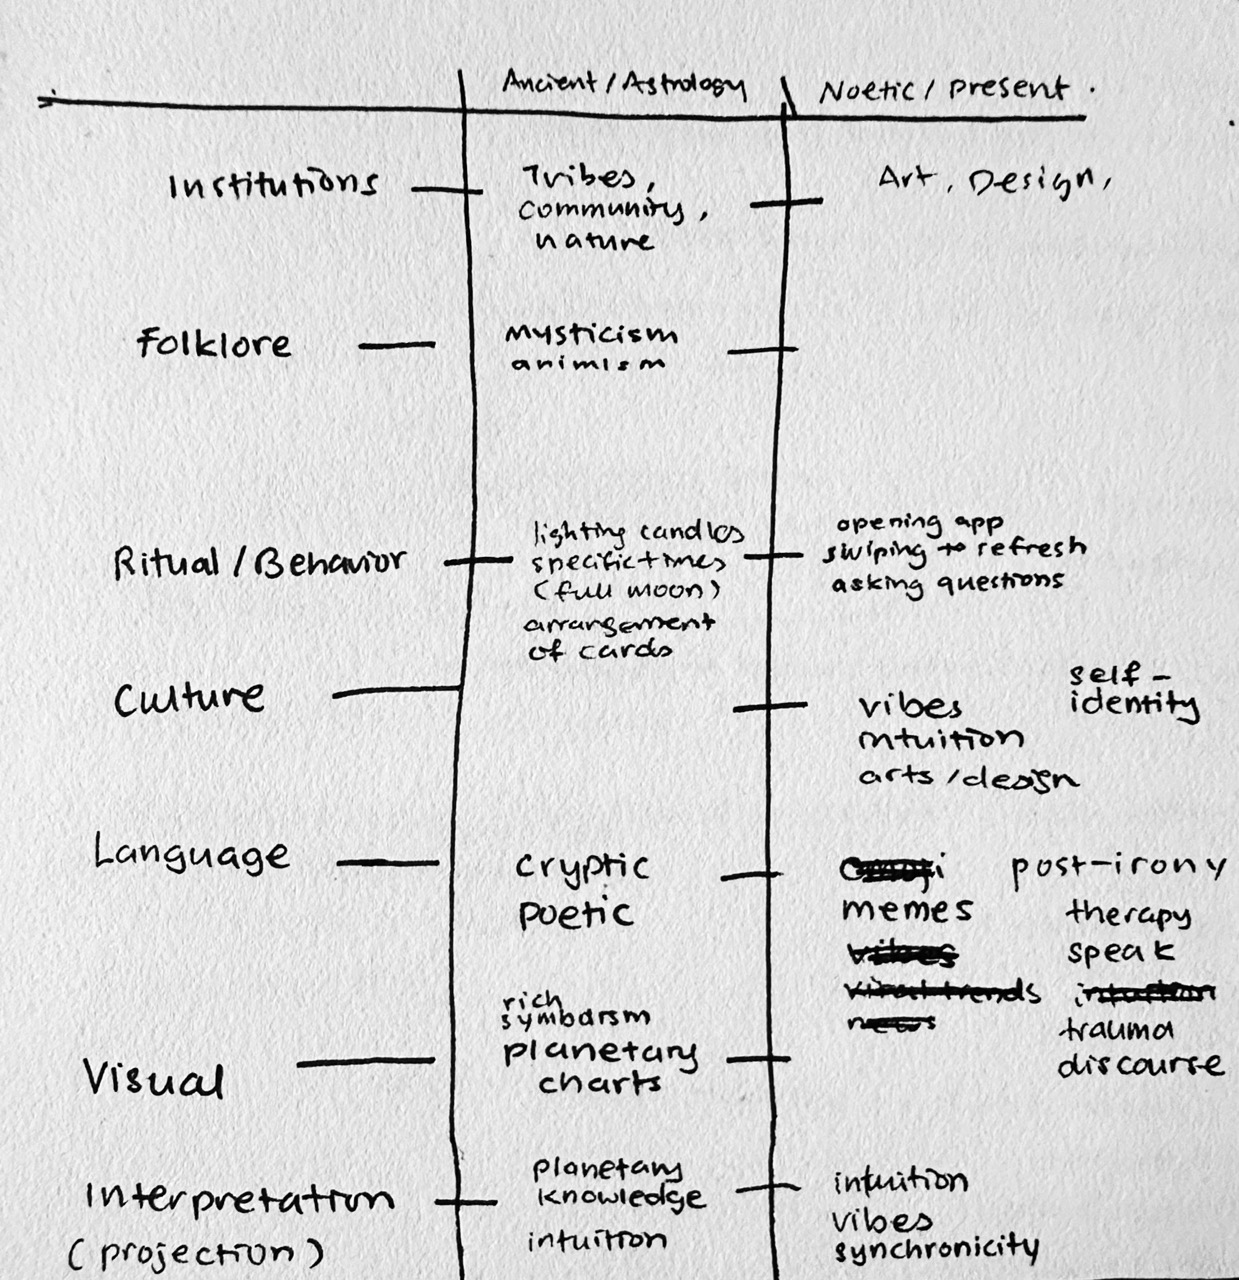 Ancient / Astrology
Noetic / present .
Institutions
Tribes,
community,
nature
Art, Design,
Folklore
mysticism
animism
Ritual / Behavior
lighting candles
specific times
(full moon)
arrangement
of cards
opening app
swiping to refresh
asking questions
Culture
vibes
intuition
arts / design
self-
identity
Language
cryptic
poetic
emoji
memes
vibes
viral trends
news
post-irony
therapy
speak
intuition
trauma
discourse
Visual
rich
symbolism
planetary
charts
Interpretation
(projection)
planetary
knowledge
intuition
intuition
vibes
synchronicity